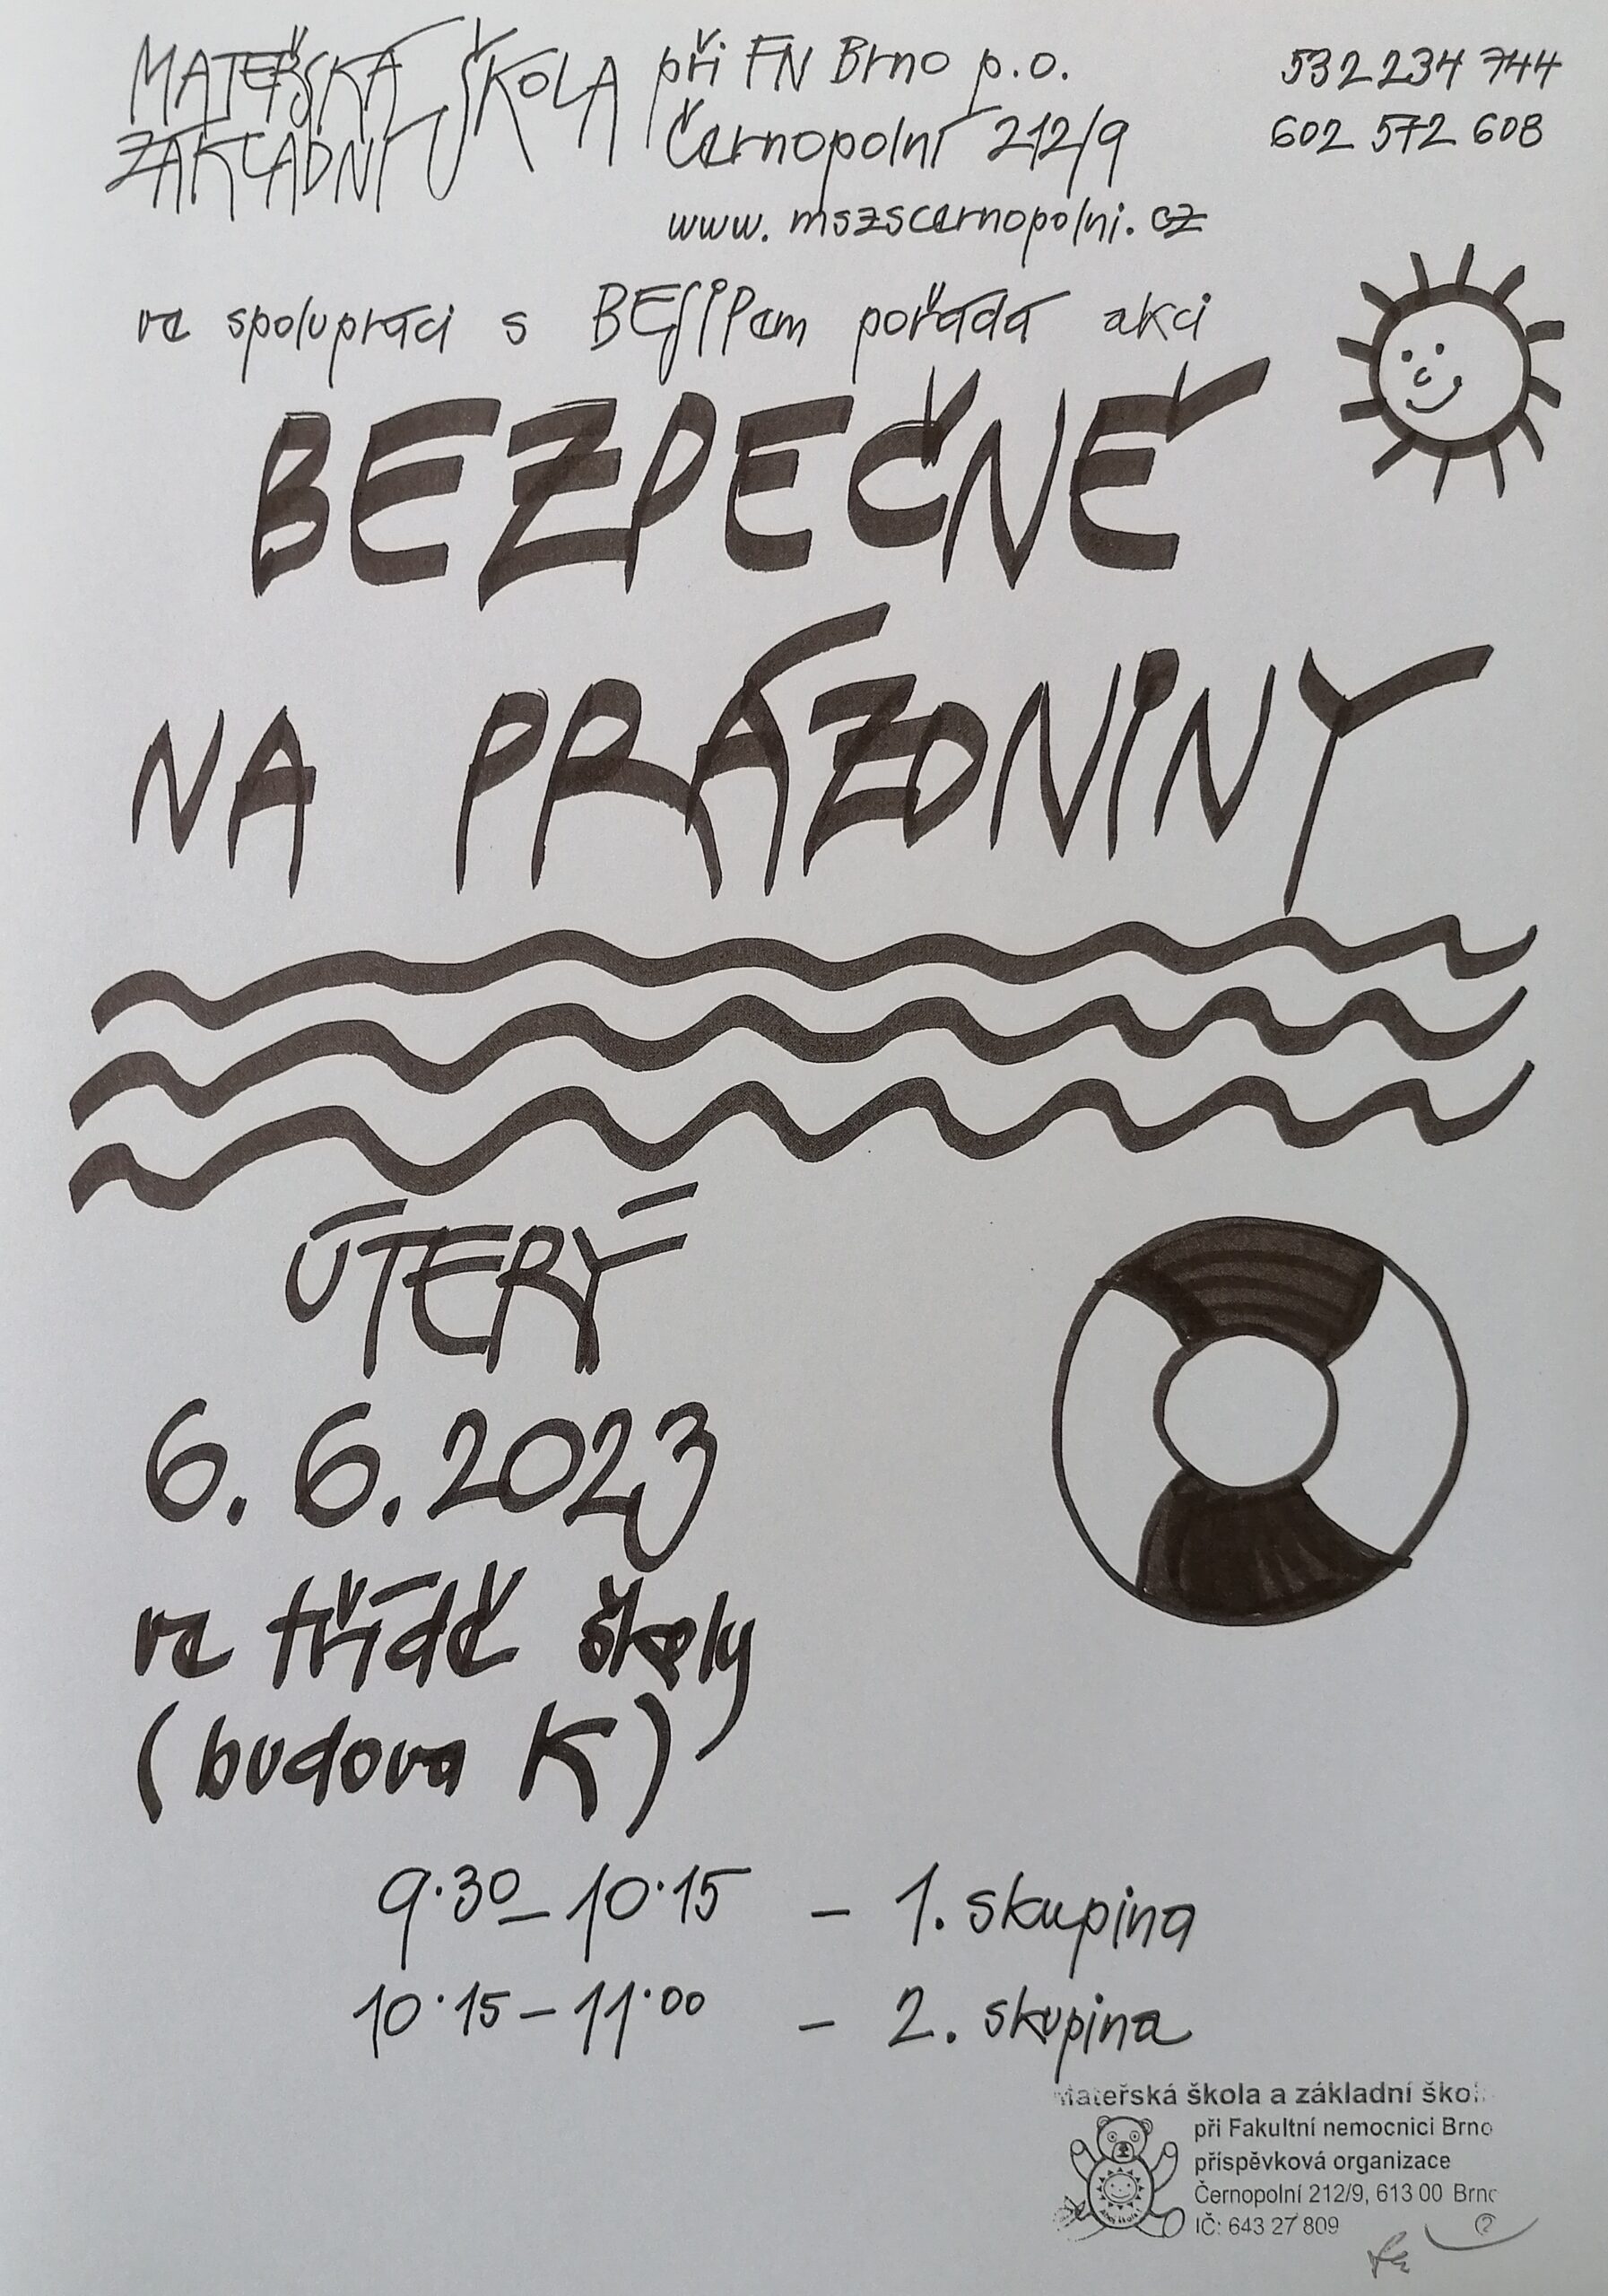 MATEŘSKÁ ŠKOLA při FN Brno p.o. 532 234 744
ZÁKLADNÍ Černopolní 212/9 602 572 608
www.mszscernopolni.cz
ve spolupráci s BESIPem pořádá akci
BEZPEČNĚ
NA PRÁZDNINY
ÚTERÝ
6.6.2023
ve třídě školy
(budova K)
9.30 – 10.15 – 1. skupina
10.15 – 11.00 – 2. skupina
Mateřská škola a základní škol
při Fakultní nemocnici Brno
příspěvková organizace
Černopolní 212/9, 613 00 Brno
IČ: 643 27 809